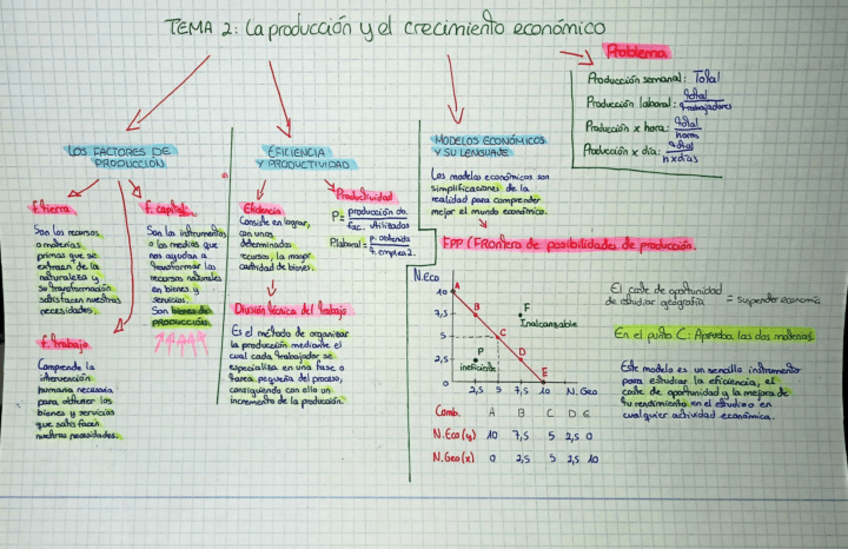 TEMA 2: La producción y el crecimiento económico
Problema
Producción semanal: Total
Producción laboral: total / trabajadores
Producción x hora: total / horas
Producción x día: total / n x días
LOS FACTORES DE
PRODUCCIÓN
f. tierra
Son los recursos
o materias
primas que se
extraen de la
naturaleza y
su transformación
satisfacen nuestras
necesidades.
f. capital
Son los instrumentos
o los medios que
nos ayudan a
transformar los
recursos naturales
en bienes y
servicios.
Son bienes de
PRODUCCIÓN
f. trabajo
Comprende la
intervención
humana necesaria
para obtener los
bienes y servicios
que satisfacen
nuestras necesidades.
EFICIENCIA
Y PRODUCTIVIDAD
Eficiencia
Consiste en lograr,
con unos
determinados
recursos, la mayor
cantidad de bienes.
Productividad
P = producción ob. / fac. utilizados
P. laboral = p. obtenida / t. emplea2.
División técnica del trabajo
Es el método de organizar
la producción mediante el
cual cada trabajador se
especializa en una fase o
tarea pequeña del proceso,
consiguiendo con ello un
incremento de la producción.
MODELOS ECONÓMICOS
Y SU LENGUAJE
Los modelos económicos son
simplificaciones de la
realidad para comprender
mejor el mundo económico.
FPP (FRontera de posibilidades de producción.
N.Eco
10
7,5
5
2,5
0
A
B
C
D
E
F
Inalcanzable
P
ineficiente
2,5 5 7,5 10 N. Geo
Comb. A B C D E
N.Eco (y) 10 7,5 5 2,5 0
N.Geo (x) 0 2,5 5 2,5 10
El coste de oportunidad
de estudiar geografía = suspender economía
En el punto C: Aprueba las dos materias.
Este modelo es un sencillo instrumento
para estudiar la eficiencia, el
coste de oportunidad y la mejora de
tu rendimiento en el estudio o en
cualquier actividad económica.